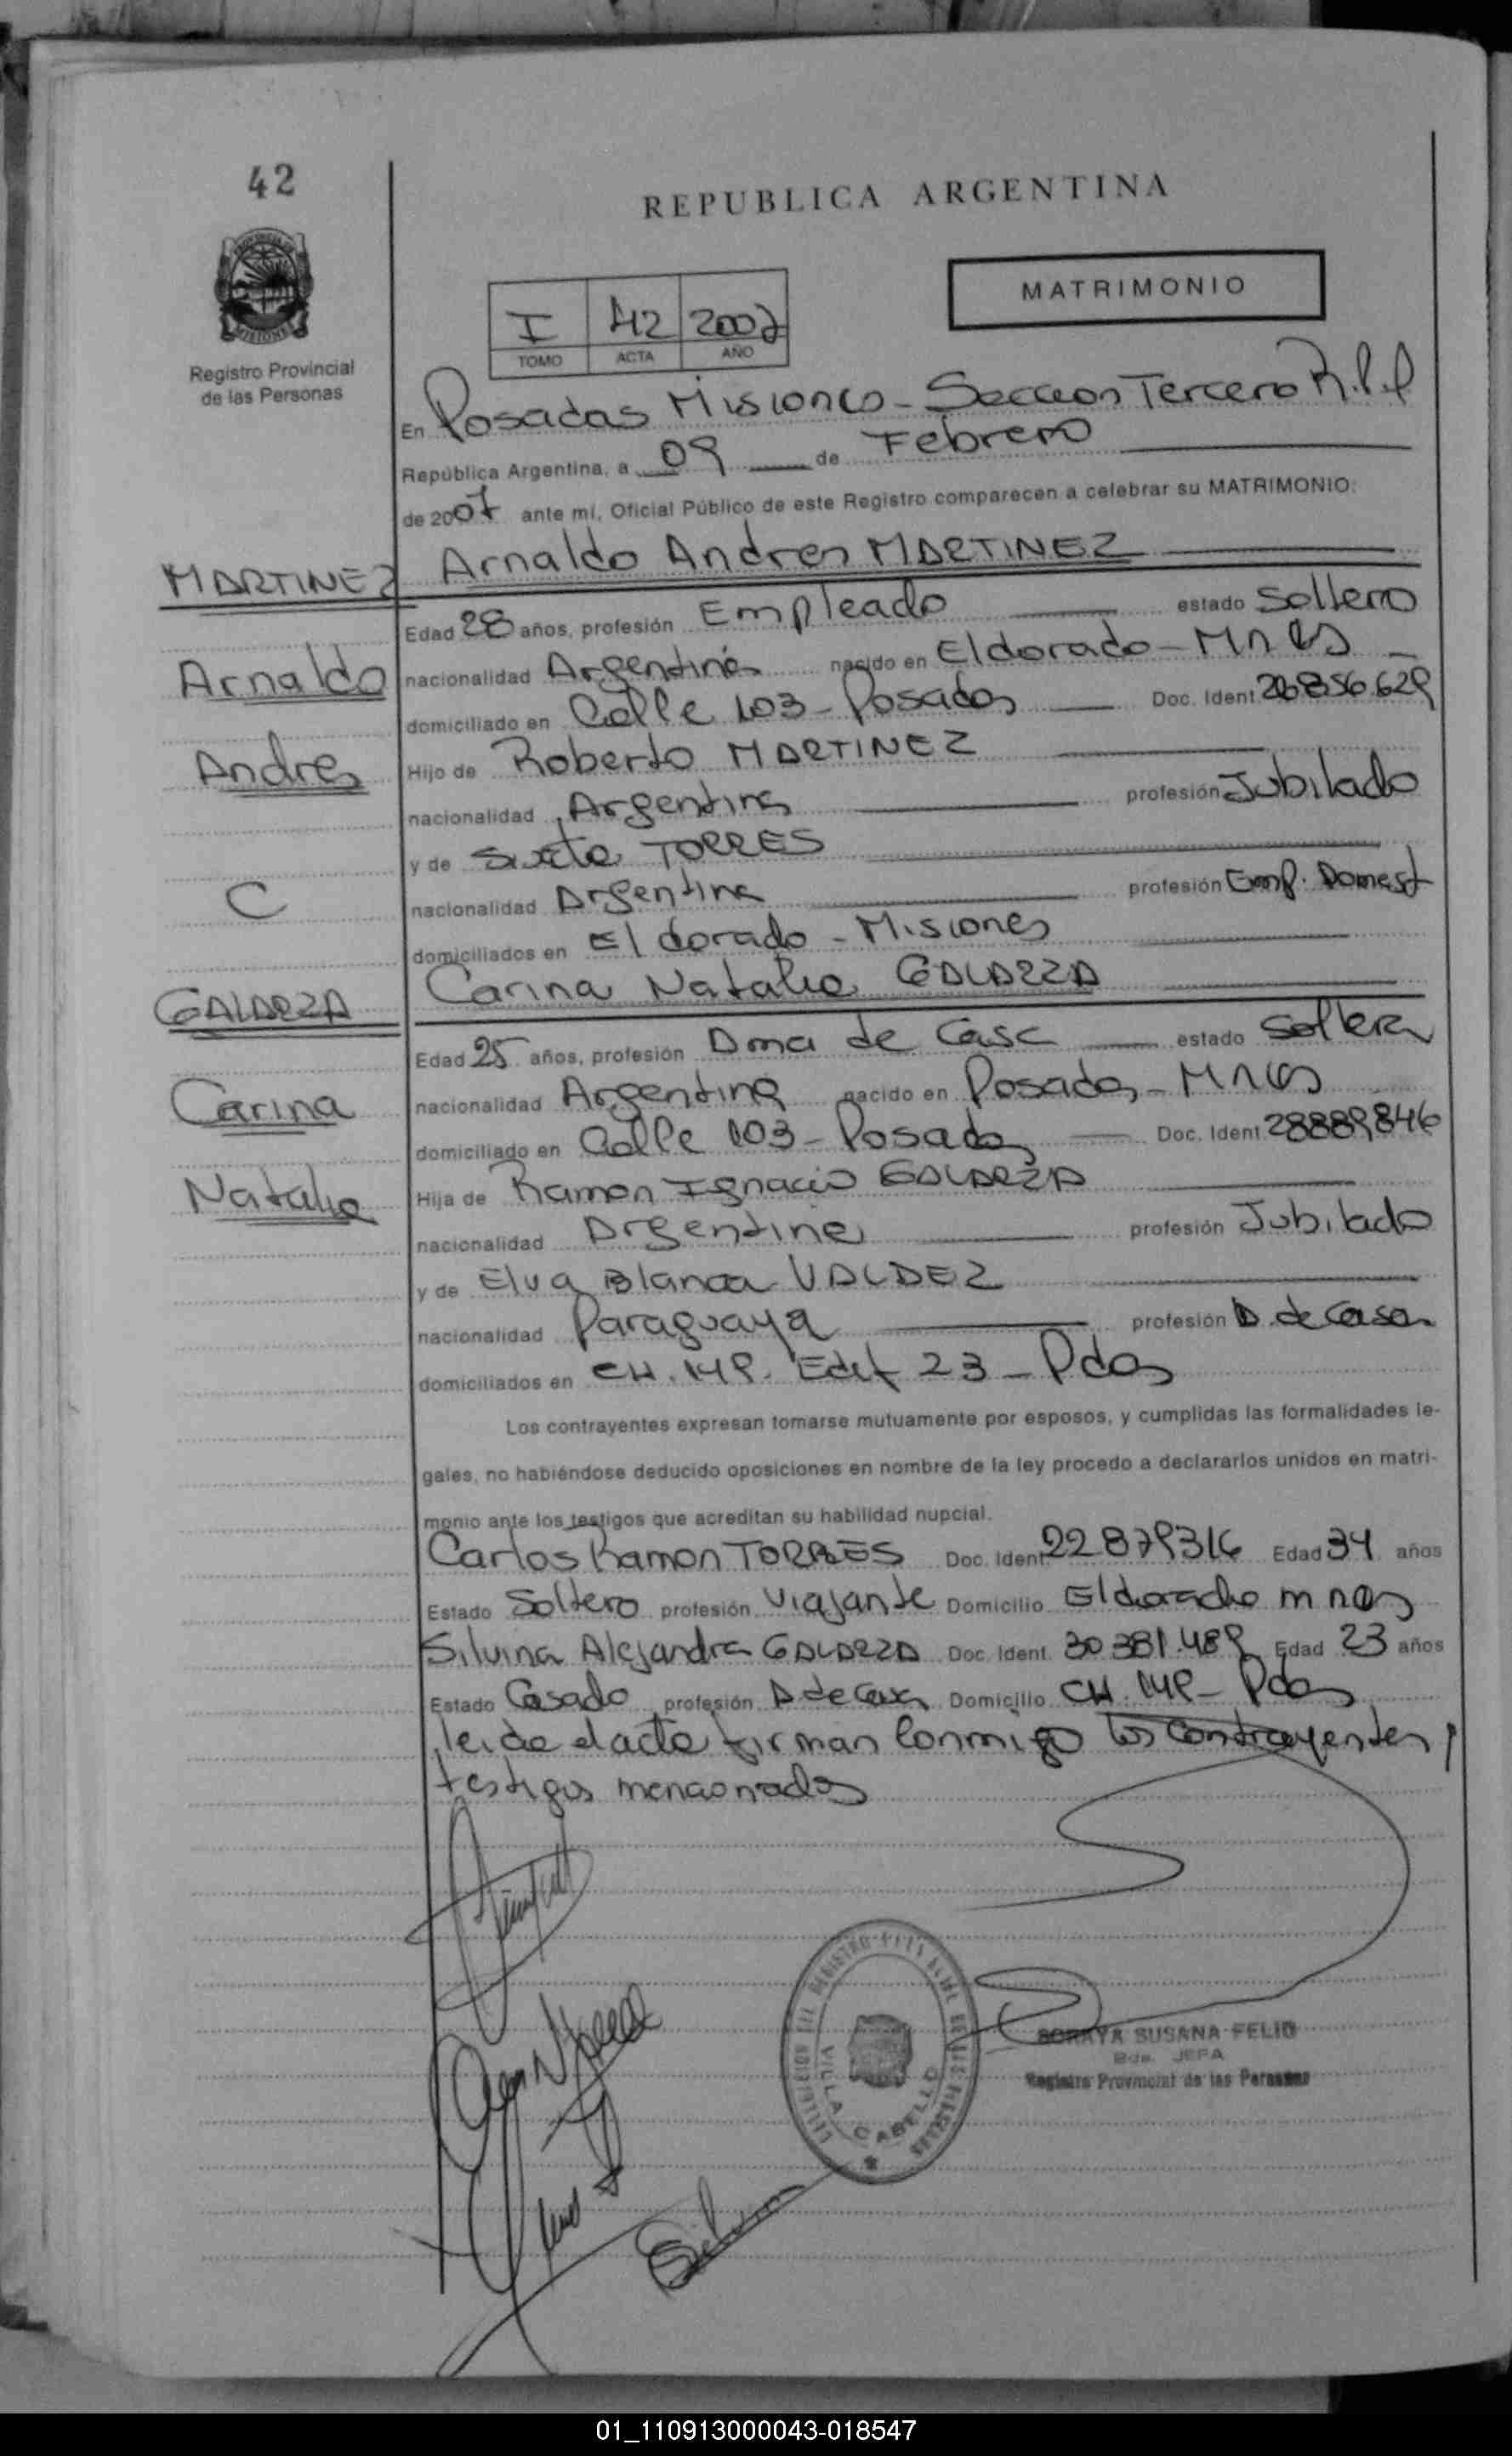 42
REPUBLICA ARGENTINA
MATRIMONIO
I 42 2007
TOMO ACTA AÑO
Registro Provincial
de las Personas
En Posadas Misiones - Seccion Tercera R.P.P
República Argentina, a 09 de Febrero
de 2007 ante mí, Oficial Público de este Registro comparecen a celebrar su MATRIMONIO:
MARTINEZ Arnaldo Andres MARTINEZ
Edad 28 años, profesión Empleado estado Soltero
Arnaldo nacionalidad Argentina nacido en Eldorado - Mnes
domiciliado en Calle 103 - Posadas Doc. Ident. 26.856.629
Andres Hijo de Roberto MARTINEZ
nacionalidad Argentina profesión Jubilado
y de Sixta TORRES
C nacionalidad Argentina profesión Emp. Domest
domiciliados en El dorado - Misiones
GALARZA Carina Natalia GALARZA
Edad 25 años, profesión Ama de Casa estado Soltera
Carina nacionalidad Argentina nacido en Posadas - Mnes
domiciliado en Calle 103 - Posadas Doc. Ident. 28889846
Natalia Hija de Ramon Ignacio GALARZA
nacionalidad Argentina profesión Jubilado
y de Elva Blanca VALDEZ
nacionalidad Paraguaya profesión A. de Casa
domiciliados en CH. 149. Edif 23 - Pdas
Los contrayentes expresan tomarse mutuamente por esposos, y cumplidas las formalidades le-
gales, no habiéndose deducido oposiciones en nombre de la ley procedo a declararlos unidos en matri-
monio ante los testigos que acreditan su habilidad nupcial.
Carlos Ramon TORRES Doc. Ident. 22879316 Edad 34 años
Estado Soltero profesión Viajante Domicilio Eldorado mnes
Silvina Alejandra GALARZA Doc. Ident. 30381.489 Edad 23 años
Estado Casado profesión A de Casa Domicilio CH. 149 - Pdas
leida el acta firman conmigo los contrayentes y
testigos mencionados
VILLA CABELLO
SORAYA SUSANA FELIU
JEFA
Registro Provincial de las Personas
01_110913000043-018547